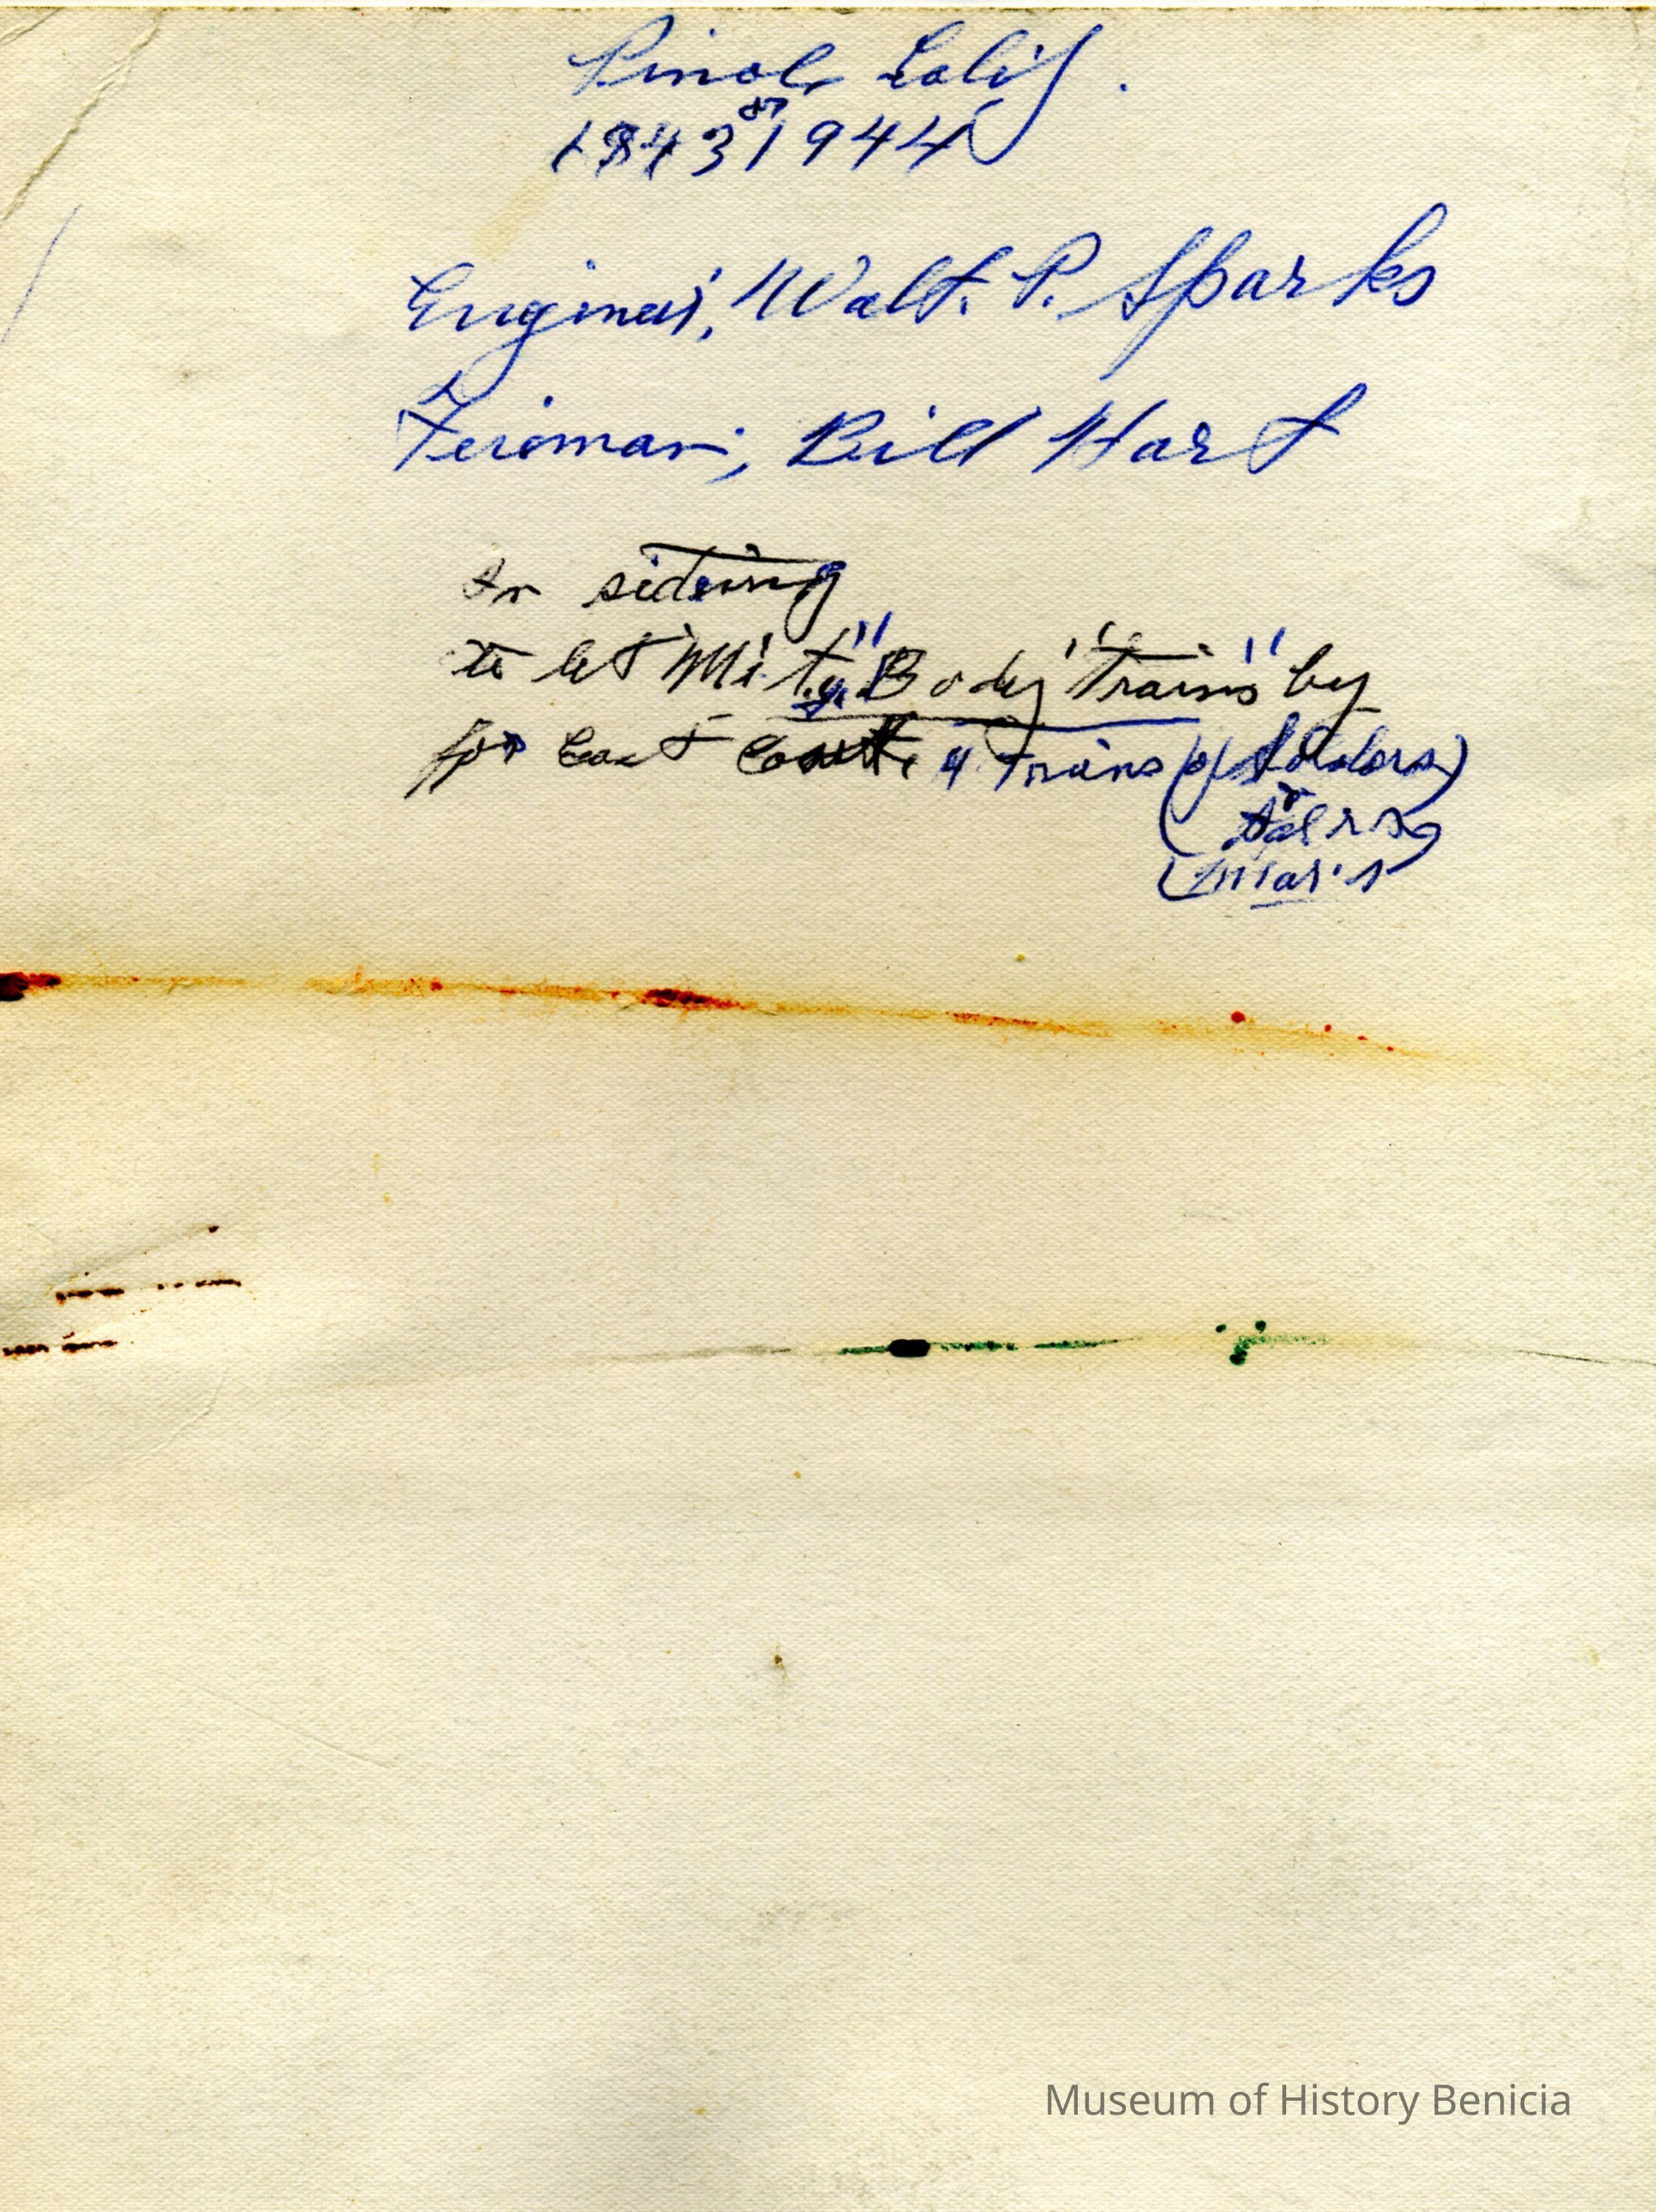 Pinole Calif.
1943 or 1944
Engineer, Walt. P. Sparks
Fireman, Bill Hart
In sideing
to let "Mity" Body "Trains" by
for East Coast 4 Trains of
Museum of History Benicia